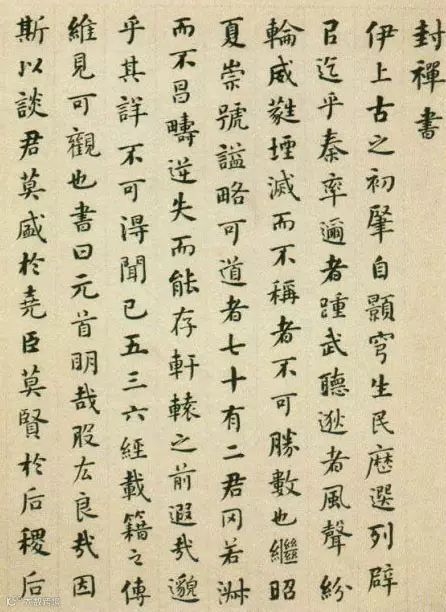 封禪書
伊上古之初肇自顥穹生民歷選列辟
㠯迄乎秦率邇者踵武聽逖者風聲紛
輪威蕤堙滅而不稱者不可勝數也繼昭
夏崇號謚略可道者七十有二君罔若淑
而不昌疇逆失而能存軒轅之前遐哉邈
乎其詳不可得聞已五三六經載籍之傳
維見可觀也書曰元首明哉股肱良哉因
斯以談君莫盛於堯臣莫賢於后稷后